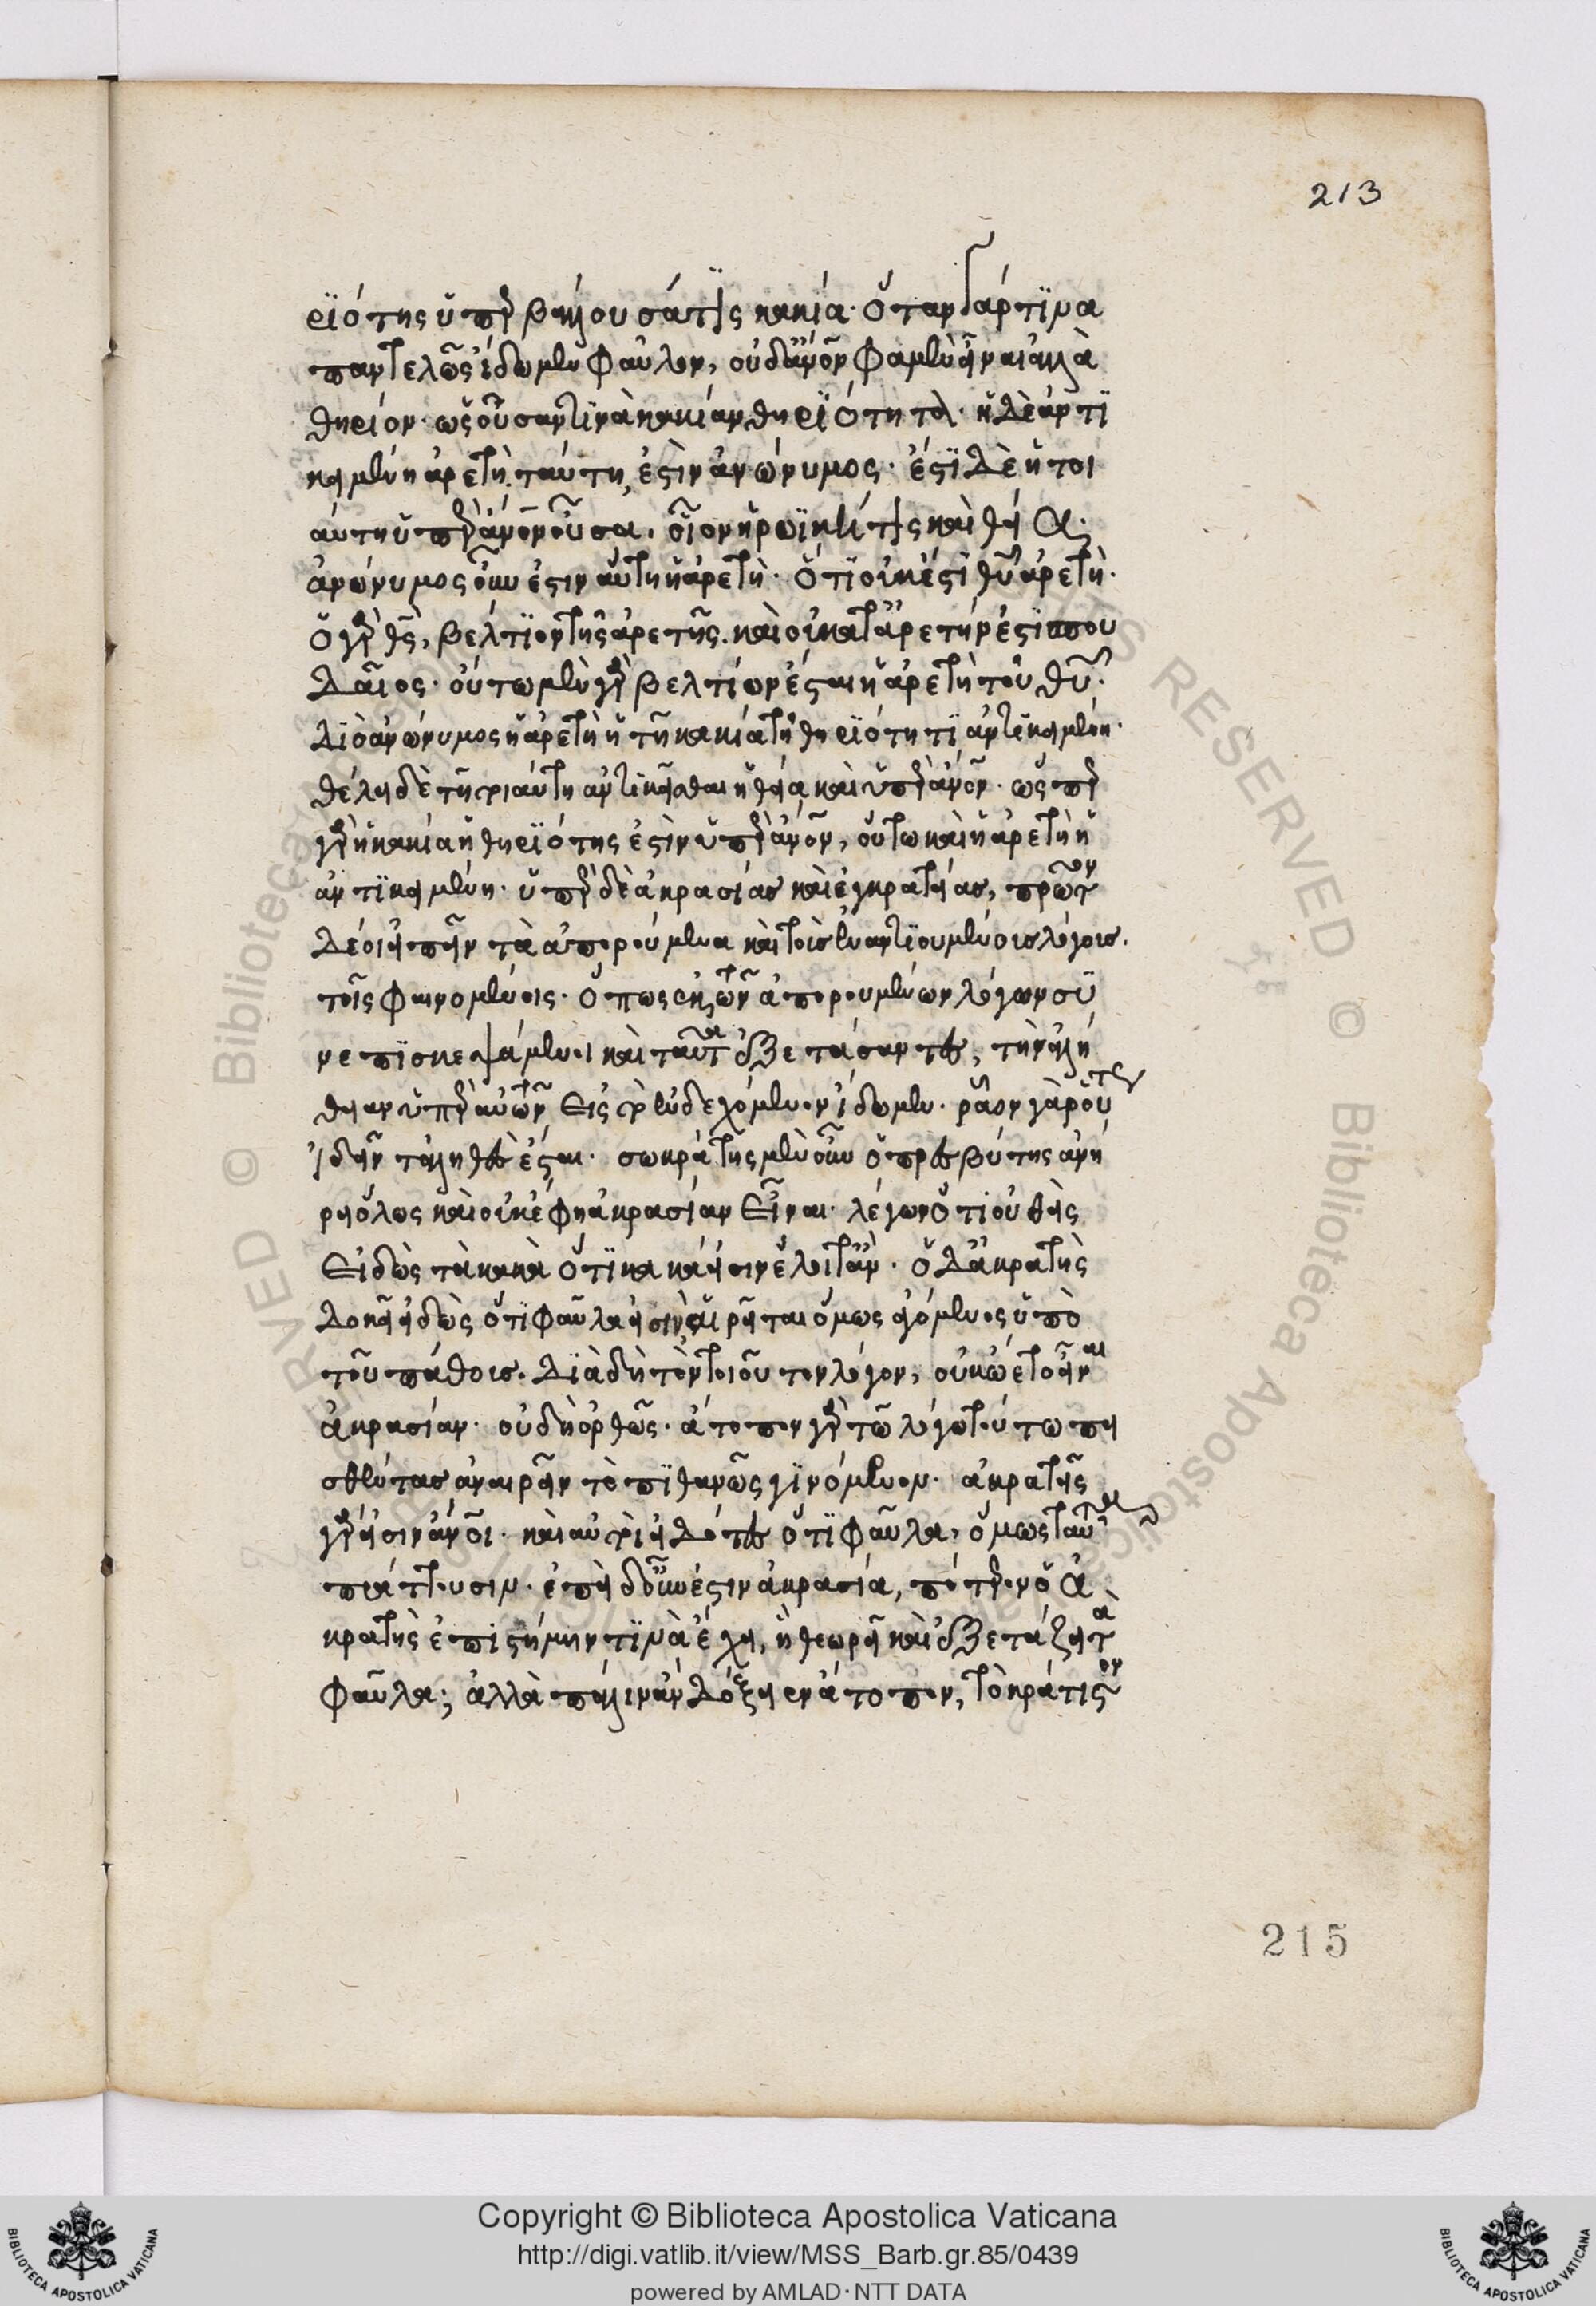 213
ριότης ὑπερβάλλουσά τις κακία· ὅταν γάρ τινα
παντελῶς ἴδωμεν φαῦλον, οὐδ' ἄνθρωπόν φαμεν εἶναι ἀλλὰ
θηρίον· ὡς οὖσάν τινα κακίαν θηριότητα· ἡ δὲ ἀντι
κειμένη ἀρετὴ ταύτῃ ἐστὶν ἀνώνυμος· ἔστι δὲ ἡ τοι
αύτη ὑπὲρ ἄνθρωπον οὖσα, οἷον ἡρωϊκή τις καὶ θεία·
ἀνώνυμος οὖν ἐστιν αὕτη ἡ ἀρετὴ· ὅτι οὐκ ἔστι θεοῦ ἀρετὴ·
ὁ γὰρ θεὸς, βελτίων τῆς ἀρετῆς. καὶ οὐ κατ' ἀρετήν ἐστι σπου
δαῖος· οὕτω μὲν γὰρ βελτίων ἔσται ἡ ἀρετὴ τοῦ θεοῦ·
διὸ ἀνώνυμος ἡ ἀρετὴ ἡ τῇ κακίᾳ τῇ θηριότητι ἀντικειμένη·
θέλει δὲ τῇ τοιαύτῃ ἀντικεῖσθαι ἡ θεία καὶ ὑπὲρ ἄνθρωπον· ὥσπερ
γὰρ ἡ κακία ἡ θηριότης ἐστὶν ὑπὲρ ἄνθρωπον, οὕτω καὶ ἡ ἀρετὴ ἡ
ἀντικειμένη· ὑπὲρ δὲ ἀκρασίας καὶ ἐγκρατείας, πρῶτον
δέοι εἰπεῖν τὰ ἀπορούμενα καὶ τοὺς ἐναντιουμένους λόγους.
τοῖς φαινομένοις· ὅπως ἐκ τῶν ἀπορουμένων λόγων συ
νεπισκεψάμενοι καὶ ταῦτα ἐξετάσαντες, τὴν ἀλή
θειαν ὑπὲρ αὐτῶν εἰς τὸ ἐνδεχόμενον ἴδωμεν· ῥᾷον γὰρ οὕτως
ἰδεῖν τἀληθὲς ἔσται· σωκράτης μὲν οὖν ὁ πρεσβύτης ἀνῄ
ρει ὅλως καὶ οὐκ ἔφη ἀκρασίαν εἶναι· λέγων ὅτι οὐθεὶς
εἰδὼς τὰ κακὰ ὅτι κακά εἰσιν ἕλοιτ' ἄν· ὁ δ' ἀκρατὴς
δοκεῖ εἰδὼς ὅτι φαῦλα εἰσὶν αἱρεῖσθαι ὅμως ἀγόμενος ὑπὸ
τοῦ πάθους. διὰ δὴ τὸν τοιοῦτον λόγον, οὐκ ᾤετο εἶναι
ἀκρασίαν· οὐ δὴ ὀρθῶς· ἄτοπον γὰρ τῷ λόγῳ τούτῳ πει
σθέντας ἀναιρεῖν τὸ πιθανῶς γινόμενον· ἀκρατεῖς
γάρ εἰσιν ἄνθρωποι· καὶ αὐτοὶ εἰδότες ὅτι φαῦλα, ὅμως ταῦτα
πράττουσιν· ἐπεὶ δ' οὖν ἐστιν ἀκρασία, πότερον ὁ ἀ
κρατὴς ἐπιστήμην τινὰ ἔχει, ᾗ θεωρεῖ καὶ ἐξετάζει τὰ
φαῦλα; ἀλλὰ πάλιν ἂν δόξειεν ἄτοπον, τὸ κράτιστον
215
Copyright © Biblioteca Apostolica Vaticana
http://digi.vatlib.it/view/MSS_Barb.gr.85/0439
powered by AMLAD·NTT DATA